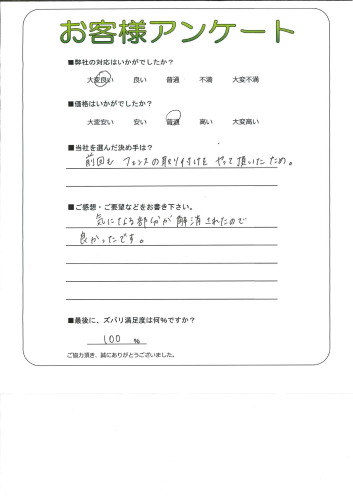 お客様アンケート
■弊社の対応はいかがでしたか？
大変良い 良い 普通 不満 大変不満
■価格はいかがでしたか？
大変安い 安い 普通 高い 大変高い
■当社を選んだ決め手は？
前回もフェンスの取り付けをやって頂いたため。
■ご感想・ご要望などをお書き下さい。
気になる部分が解消されたので
良かったです。
■最後に、ズバリ満足度は何％ですか？
100 %
ご協力頂き、誠にありがとうございました。